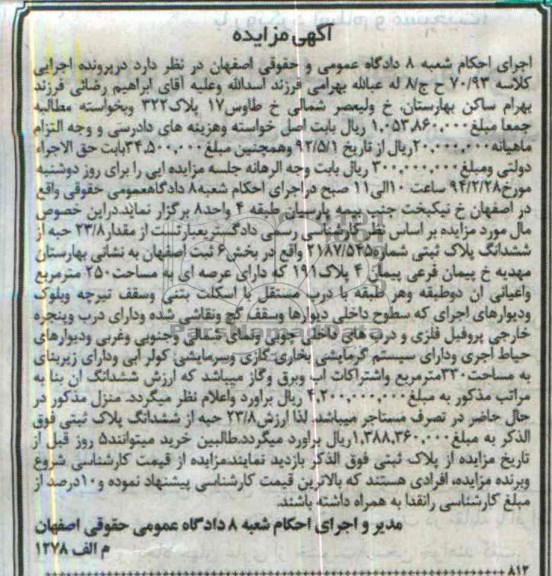 آگهی مزایده
اجرای احکام شعبه ۸ دادگاه عمومی و حقوقی اصفهان در نظر دارد درپرونده اجرایی
کلاسه ۷۰/۹۳ ح ج/۸ له عبالله بهرامی فرزند اسدالله وعلیه آقای ابراهیم رضائی فرزند
بهرام ساکن بهارستان. خ ولیعصر شمالی خ طاوس۱۷ پلاک۳۲۲ وبخواسته مطالبه
جمعا مبلغ ۱,۰۵۳,۸۶۰,۰۰۰ ریال بابت اصل خواسته وهزینه های دادرسی و وجه التزام
ماهیانه ۲۰,۰۰۰,۰۰۰ریال از تاریخ ۹۲/۵/۱ وهمچنین مبلغ ۳۴,۵۰۰,۰۰۰بابت حق الاجراء
دولتی ومبلغ ۳۰۰,۰۰۰,۰۰۰ ریال بابت وجه الرهانه جلسه مزایده ایی را برای روز دوشنبه
مورخ۹۴/۲/۲۸ ساعت ۱۰الی۱۱ صبح دراجرای احکام شعبه۸ دادگاهعمومی حقوقی واقع
در اصفهان خ نیکبخت جنب بیمه پارسیان طبقه ۴ واحد۸ برگزار نماید.دراین خصوص
مال مورد مزایده بر اساس نظر کارشناسی رسمی دادگستریعبارتست از مقدار۲۳/۸ حبه از
ششدانگ پلاک ثبتی شماره۲۱۸۷/۵۴۵ واقع در بخش۶ ثبت اصفهان به نشانی بهارستان
مهدیه خ پیمان فرعی پیمان ۴ پلاک۱۹۱ که دارای عرصه ای به مساحت۲۵۰ مترمربع
واعیانی آن دوطبقه وهر طبقه با درب مستقل با اسکلت بتنی وسقف تیرچه وبلوک
ودیوارهای اجرای که سطوح داخلی دیوارها وسقف گچ ونقاشی شده ودارای درب وپنجره
خارجی پروفیل فلزی و درب های داخلی چوبی ونمای شمالی وجنوبی وغربی ودیوارهای
حیاط اجری ودارای سیستم گرمایشی بخاری گازی وسرمایشی کولر آبی ودارای زیربنای
به مساحت۳۳۰مترمربع واشتراکات آب وبرق وگاز میباشد که ارزش ششدانگ آن بنا به
مراتب مذکور به مبلغ ۴,۲۰۰,۰۰۰,۰۰۰ ریال برآورد واعلام نظر میگردد. منزل مذکور در
حال حاضر در تصرف مستاجر میباشد. لذا ارزش۲۳/۸ حبه از ششدانگ پلاک ثبتی فوق
الذکر به مبلغ ۱,۳۸۸,۳۶۰,۰۰۰ریال برآورد میگردد.طالبین خرید میتوانند۵ روز قبل از
تاریخ مزایده از پلاک ثبتی فوق الذکر بازدید نمایند.مزایده از قیمت کارشناسی شروع
وبرنده مزایده، افرادی هستند که بالاترین قیمت کارشناسی پیشنهاد نموده و۱۰درصد از
مبلغ کارشناسی رانقدا به همراه داشته باشند.
مدیر و اجرای احکام شعبه ۸ دادگاه عمومی حقوقی اصفهان
م الف ۱۲۷۸
۸۱۲
ParsNamadData